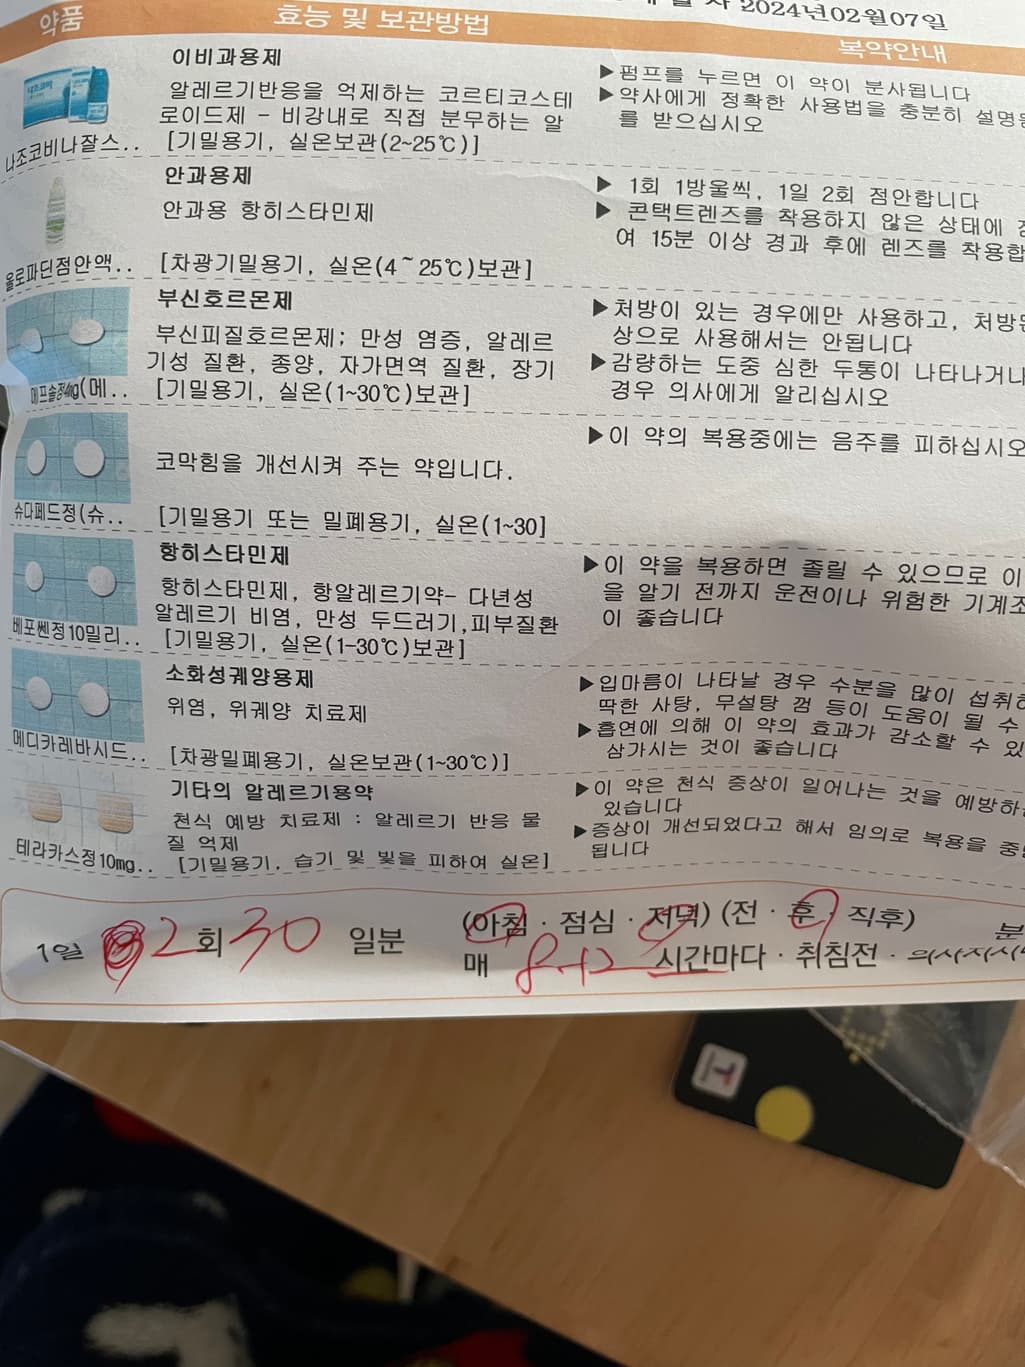 2024년02월07일
약품 효능 및 보관방법 복약안내
이비과용제
알레르기반응을 억제하는 코르티코스테
로이드제 - 비강내로 직접 분무하는 알
[기밀용기, 실온보관(2~25℃)]
나조코비나잘스..
▶펌프를 누르면 이 약이 분사됩니다
▶약사에게 정확한 사용법을 충분히
를 받으십시오
안과용제
안과용 항히스타민제
[차광기밀용기, 실온(4~25℃)보관]
올로파딘점안액..
▶ 1회 1방울씩, 1일 2회 점안합니다
▶ 콘택트렌즈를 착용하지 않은 상태에
여 15분 이상 경과 후에 렌즈를
부신호르몬제
부신피질호르몬제; 만성 염증, 알레르
기성 질환, 종양, 자가면역 질환, 장기
[기밀용기, 실온(1~30℃)보관]
메프솔정4mg(메..
▶처방이 있는 경우에만 사용하고,
상으로 사용해서는 안됩니다
▶감량하는 도중 심한 두통이 나타나거나
경우 의사에게 알리십시오
코막힘을 개선시켜 주는 약입니다.
[기밀용기 또는 밀폐용기, 실온(1~30]
슈다페드정(슈..
▶이 약의 복용중에는 음주를 피하십시오
항히스타민제
항히스타민제, 항알레르기약- 다년성
알레르기 비염, 만성 두드러기,피부질환
[기밀용기, 실온(1-30℃)보관]
베포쎈정10밀리..
▶이 약을 복용하면 졸릴 수 있으므로 이
을 알기 전까지 운전이나 위험한
이 좋습니다
소화성궤양용제
위염, 위궤양 치료제
[차광밀폐용기, 실온보관(1~30℃)]
메디카레바시드..
▶입마름이 나타날 경우 수분을 많이
딱한 사탕, 무설탕 껌 등이 도움이 될 수
▶흡연에 의해 이 약의 효과가 감소할 수
삼가시는 것이 좋습니다
기타의 알레르기용약
천식 예방 치료제 : 알레르기 반응 물
질 억제
[기밀용기, 습기 및 빛을 피하여 실온]
테라카스정10mg..
▶이 약은 천식 증상이 일어나는 것을
있습니다
▶증상이 개선되었다고 해서 임의로 복용을
됩니다
1일 2회 30 일분 (아침 · 점심 · 저녁) (전 · 후 · 직후) 분
매 8-12 시간마다 · 취침전 ·
T